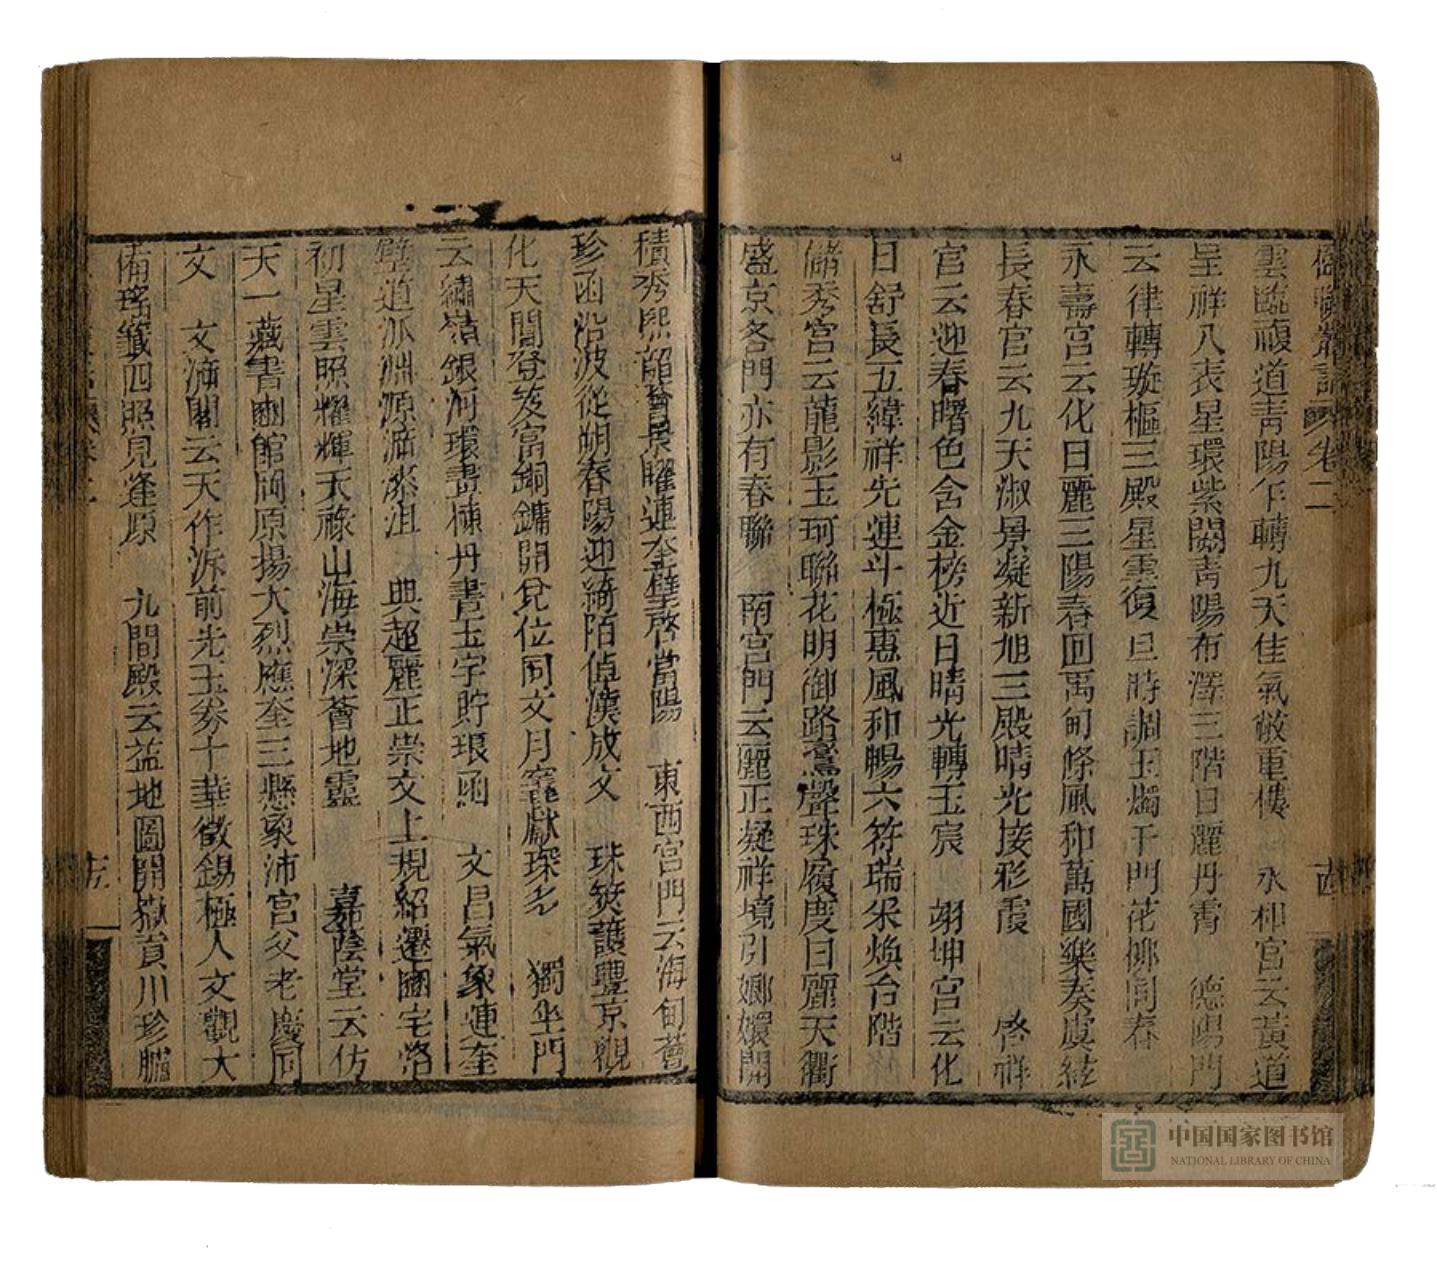 楹聯叢話 卷二 十四
雲臨複道青陽乍轉九天佳氣敞重樓 永和宮云黃道
呈祥八表星環紫闕青陽布澤三階日麗丹霄 德陽門
云律轉璇樞三殿星雲復旦時調玉燭千門花柳同春
永壽宮云化日麗三陽春回禹甸條風和萬國樂奏虞絃
長春宮云九天淑景凝新旭三殿晴光接彩霞 啓祥
宮云迎春曙色含金榜近日晴光轉玉宸 翊坤宮云化
日舒長五緯祥光連斗極惠風和暢六符瑞采煥台階
儲秀宮云龍影玉珂聯花明御路鶯聲珠履度日麗天衢
盛京各門亦有春聯 兩宮門云麗正凝祥境引嫏嬛開
積秀熙韶 景曜連奎壁啓當陽 東西宮門云海甸薈
珍函沿波從朔春陽迎綺陌倬漢成文 珠篋護豐京觀
化天閶登笈富銅鏞開兌位同文月竁獻琛多 獨坐門
云繡嶺銀河環畫棟丹書玉字貯琅函 文昌氣象連奎
壁道派淵源溯漆沮 典超麗正崇文上規紹遷豳宅洛
初星雲照耀輝天祿山海崇深薈地靈 嘉蔭堂云仿
天一藏書豳館岡原揚大烈應奎三懸象沛宮父老慶同
文 文溯閣云天作泝前光玉劵十華徵錫極人文觀大
備瑤籤四照見逢原 九間殿云益地圖開嶽貢川珍臚
十五